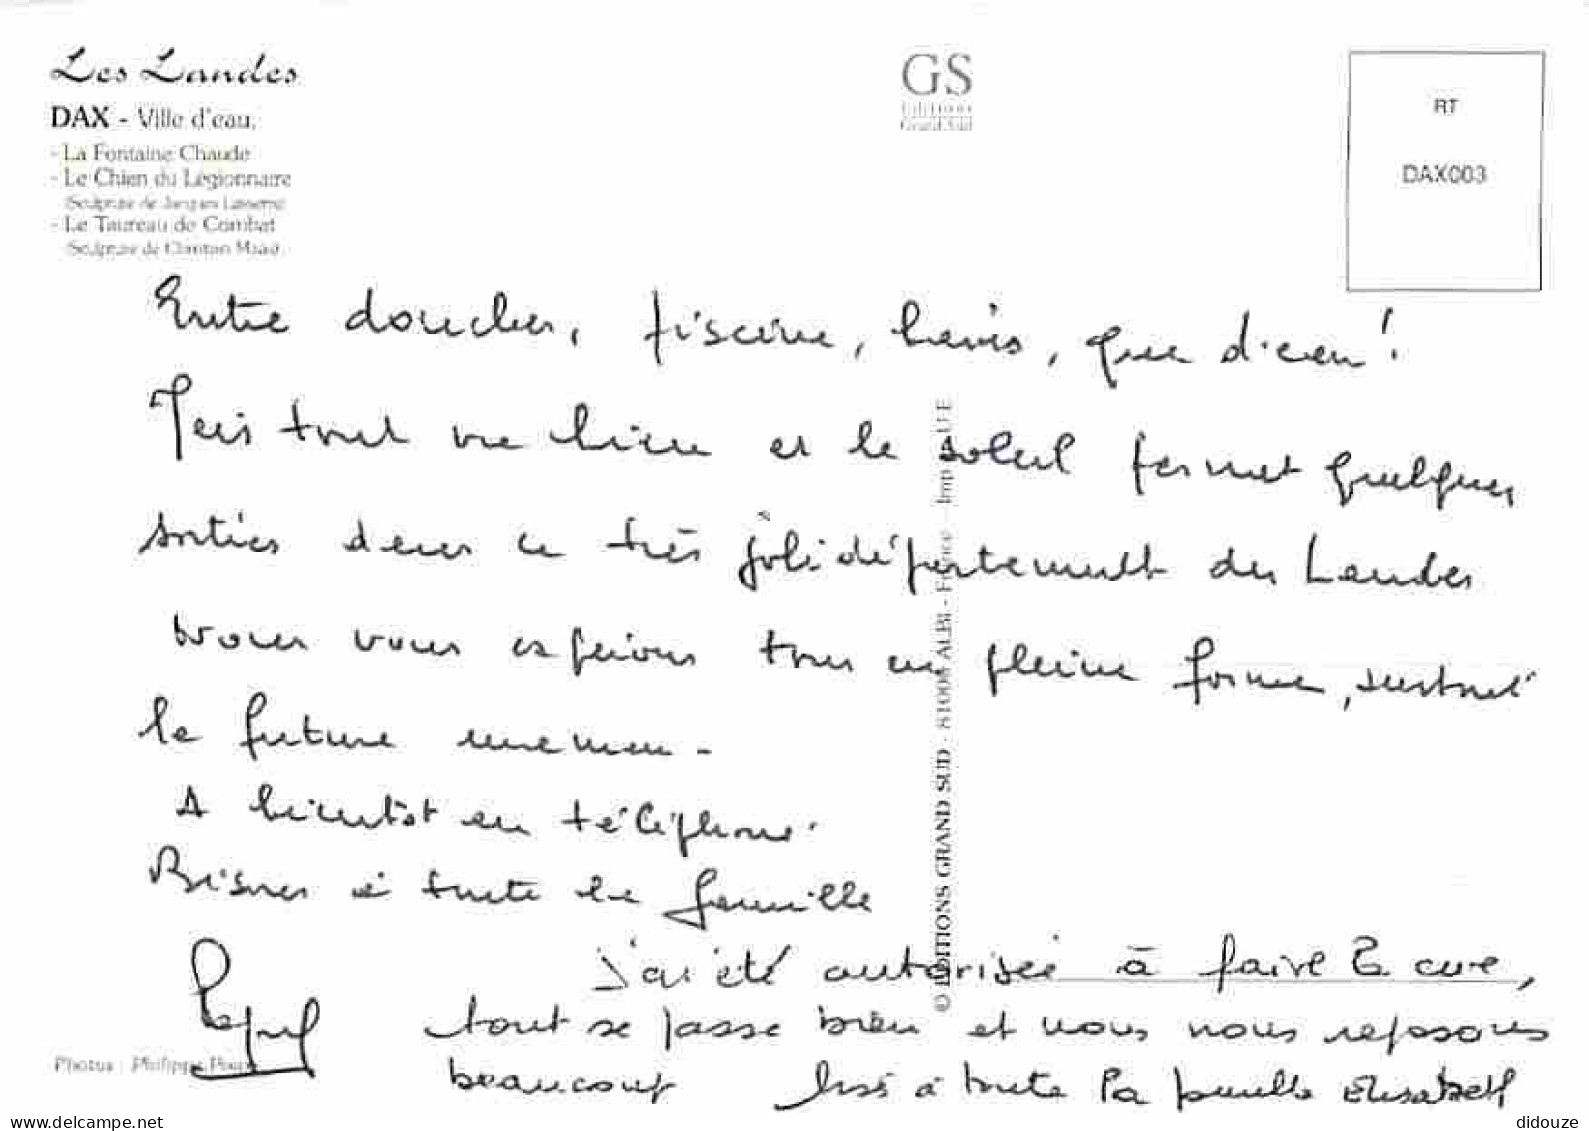 Les Landes
DAX - Ville d'eau.
- La Fontaine Chaude
- Le Chien du Légionnaire
Sculpture de Jacques
- Le Taureau de Combat
Sculpture de Christian
GS
Editions
Grand Sud
RT
DAX003
Entre douches, piscine, bains, que d'eau!
Mais tout va bien et le soleil permet quelques
sorties dans ce très joli département des Landes
Nous vous espérons tous en pleine forme, surtout
la future maman -
A bientôt au téléphone.
Bises à toute la famille
J'ai été autorisée à faire la cure,
tout se passe bien et nous nous reposons
beaucoup Bises à toute la famille Elisabeth
© EDITIONS GRAND SUD - 81000 ALBI - France - Imp UE
Photos : Philippe
didouze